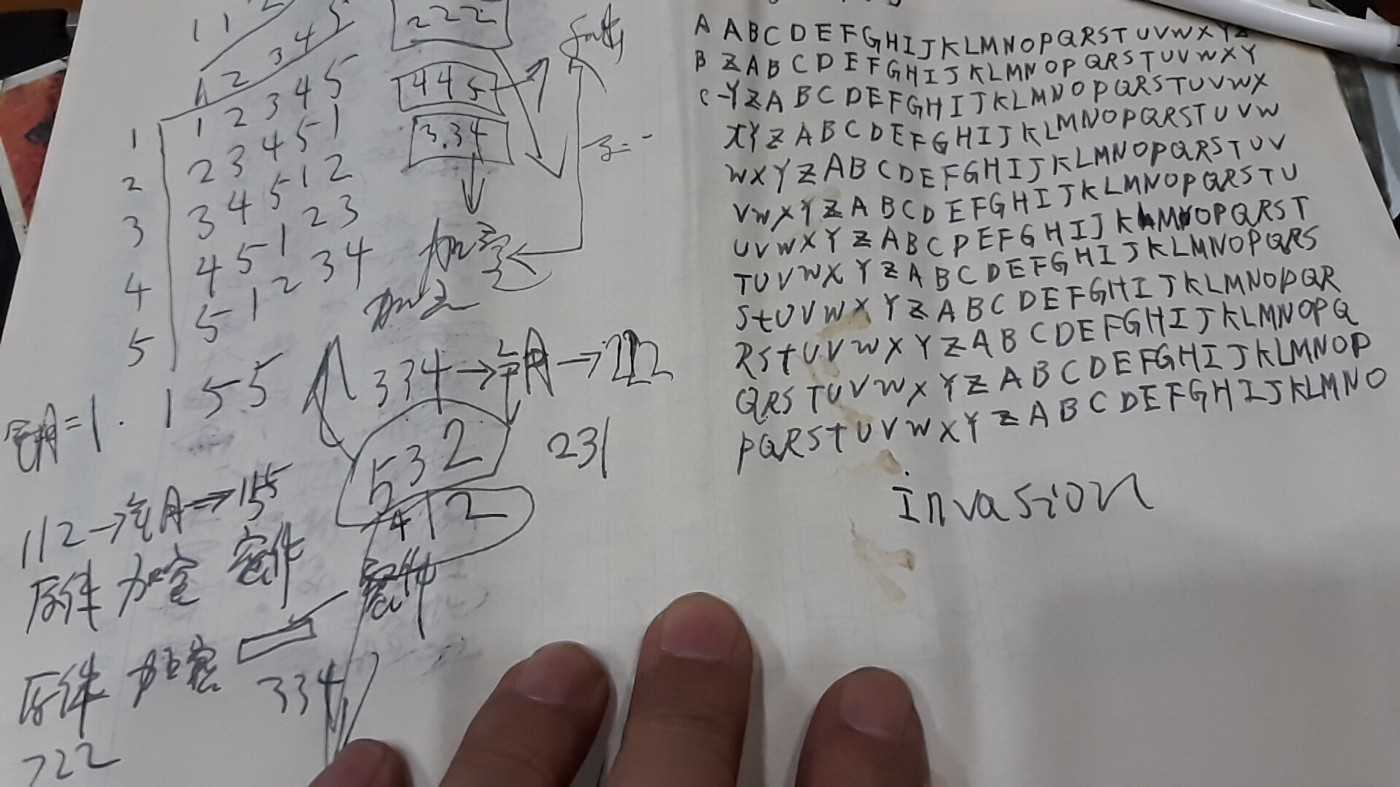 1 1 2
1 2 3 4 5
1 1 2 3 4 5
2 2 3 4 5 1
3 3 4 5 1 2
4 4 5 1 2 3
5 5 1 2 3 4
222
445
3.34
加密
334→
→222
532
231
412
=1. 155
112→
→155
原件 加密 密件
密件
原件 加密
334
722
A A B C D E F G H I J K L M N O P Q R S T U V W X Y Z
B Z A B C D E F G H I J K L M N O P Q R S T U V W X Y
C-Y Z A B C D E F G H I J K L M N O P Q R S T U V W X
X Y Z A B C D E F G H I J K L M N O P Q R S T U V W
W X Y Z A B C D E F G H I J K L M N O P Q R S T U V
V W X Y Z A B C D E F G H I J K L M N O P Q R S T U
U V W X Y Z A B C D E F G H I J K L M N O P Q R S T
T U V W X Y Z A B C D E F G H I J K L M N O P Q R S
S t U V W X Y Z A B C D E F G H I J K L M N O P Q R
R S t U V W X Y Z A B C D E F G H I J K L M N O P Q
Q R S T U V W X Y Z A B C D E F G H I J K L M N O P
P Q R S t U V W X Y Z A B C D E F G H I J K L M N O
Invasion